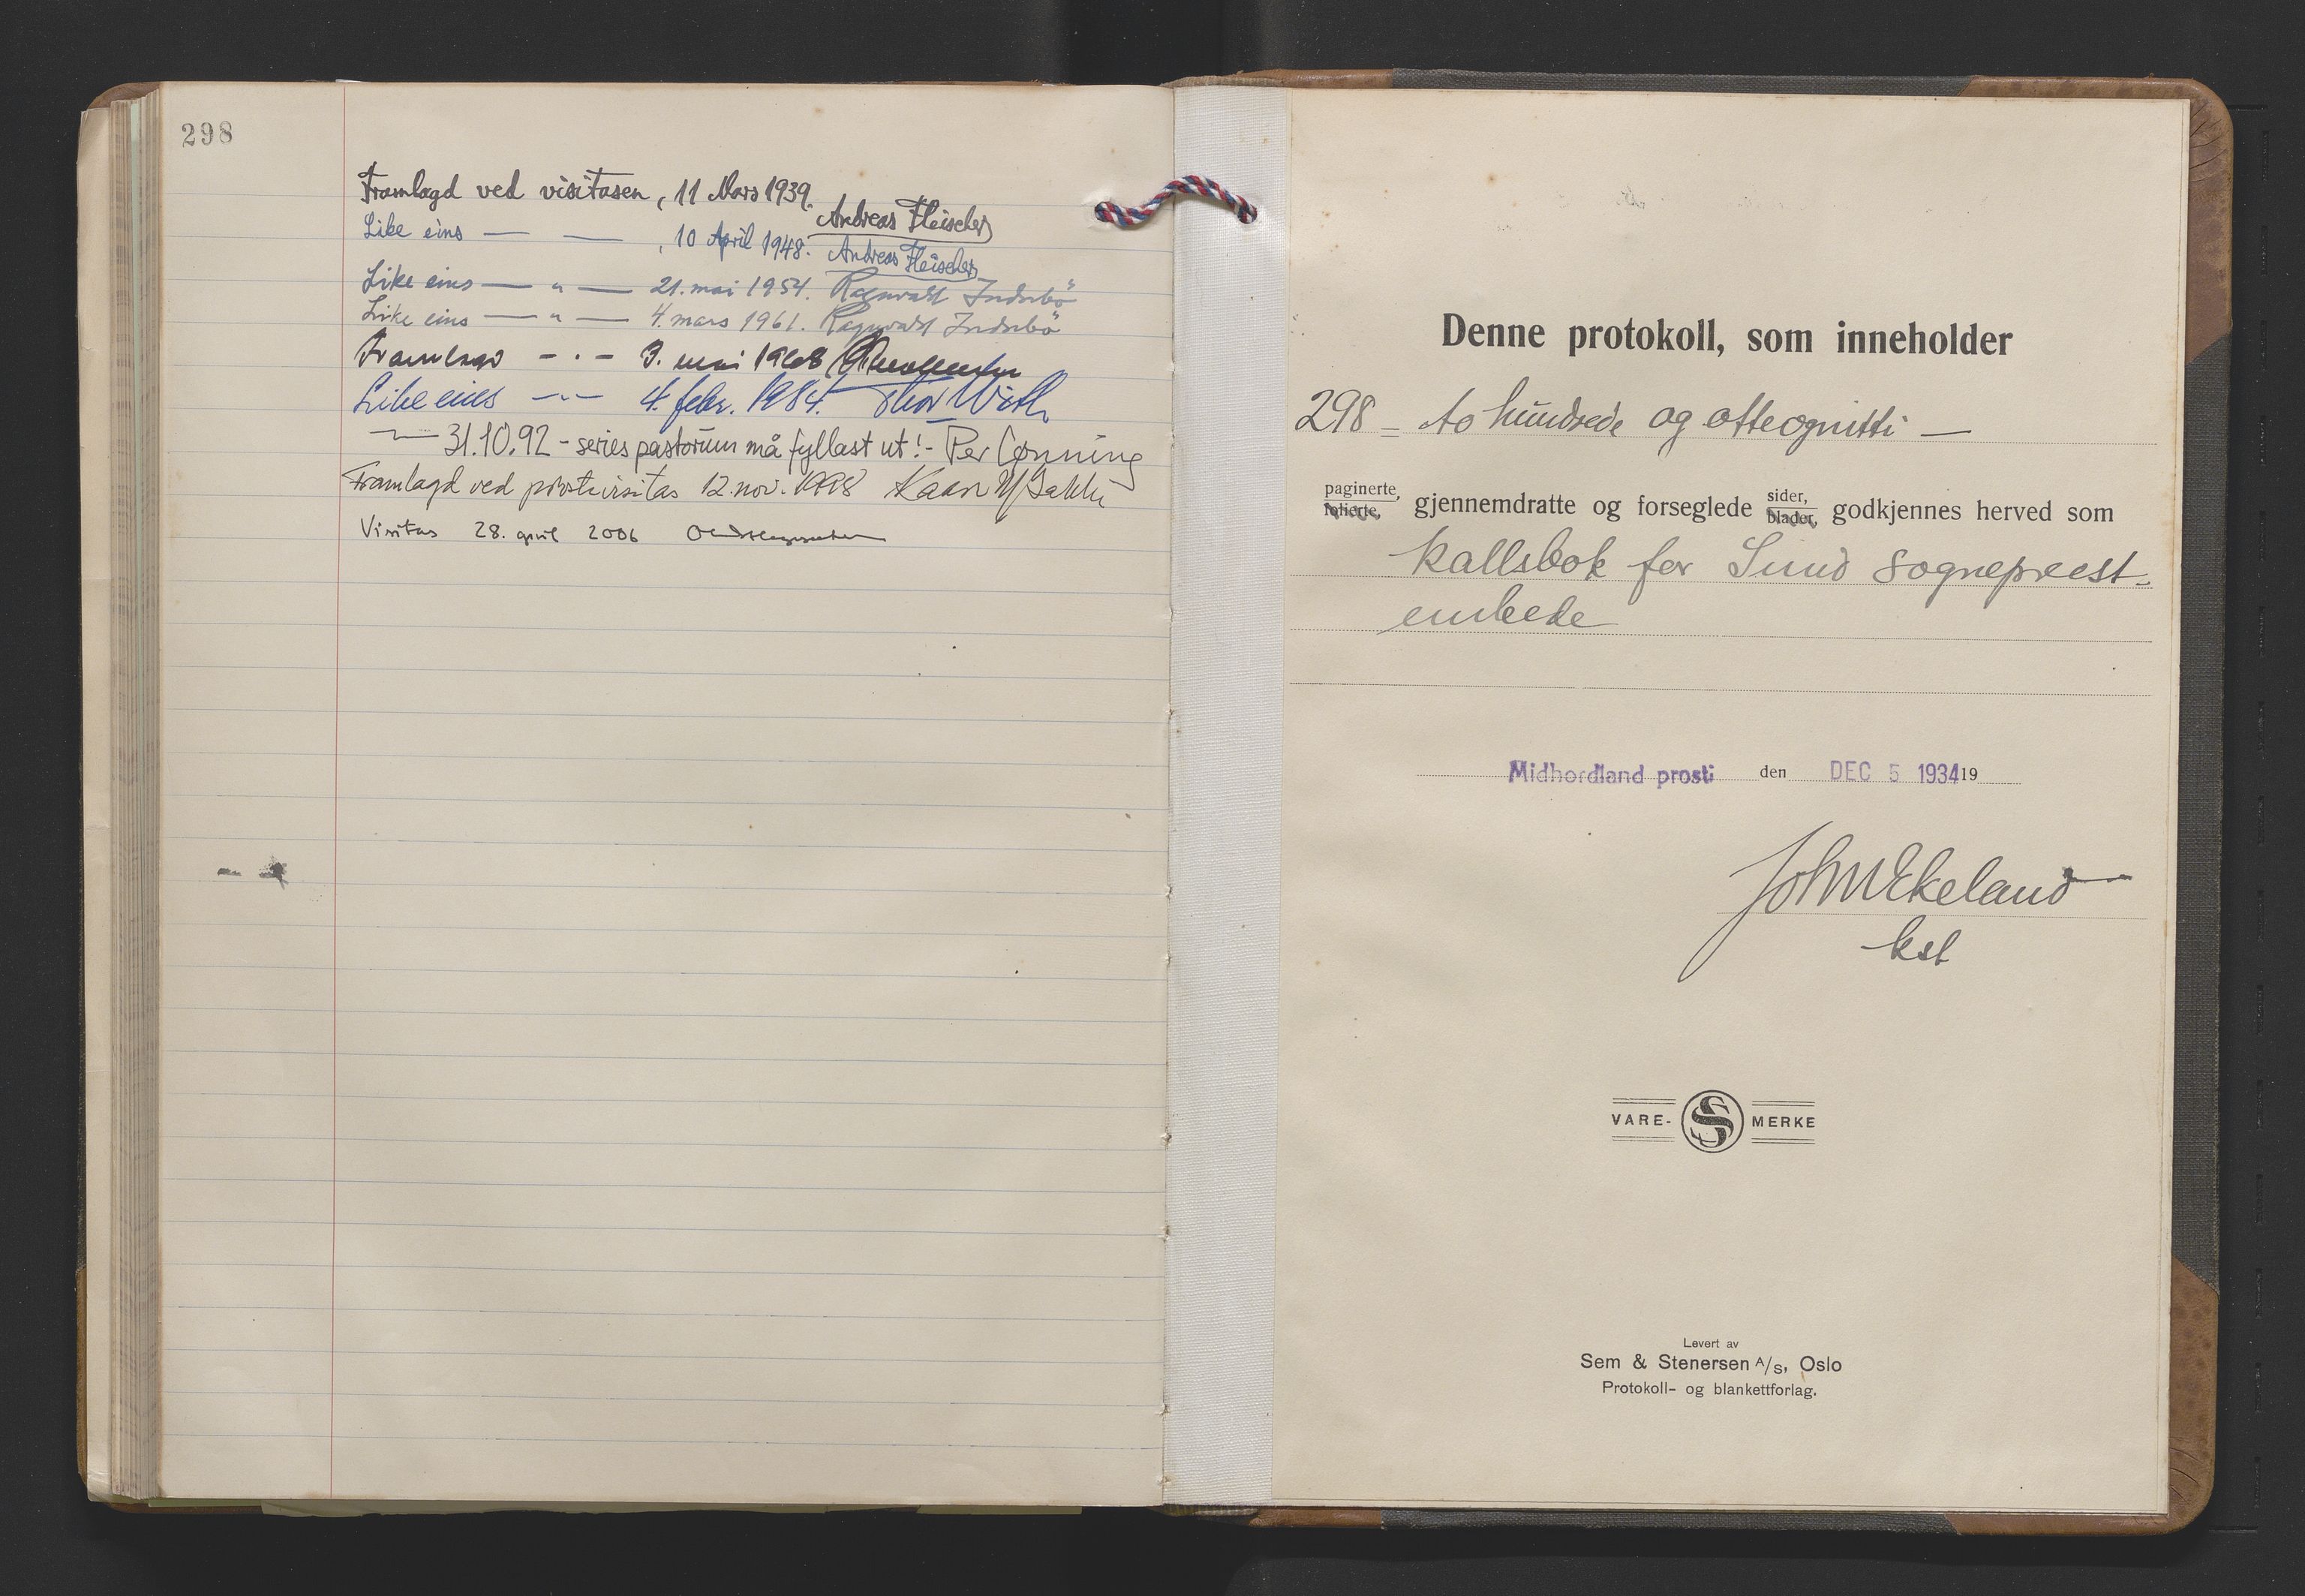 298
Framlagd ved visitasen, 11 Mars 1939. Andreas Fleischer
Like eins — — , 10 April 1948. Andreas Fleischer
Like eins — „ — 21. mai 1954. Ragnvald Indrebö
Like eins — „ — 4. mars 1961. Ragnvald Indrebö
Framlagd - . - 3. mai 1968
Like eins - . - 4. febr. 1984. Thor With
— 31.10.92 - series pastorum må fyllast ut! - Per Lønning
Framlagd ved prostevisitas 12. nov. 1998
Visitas 28. april 2006
Denne protokoll, som inneholder
298 = to hundrede og otteognitti —
paginerte, folierte, gjennemdratte og forseglede sider, blader, godkjennes herved som
kallsbok for Sund sogneprest-
embede
Midhordland prosti den DEC 5 1934 19
Joh W Ekeland
kst
VARE- S MERKE
Levert av
Sem & Stenersen A/S, Oslo
Protokoll- og blankettforlag.